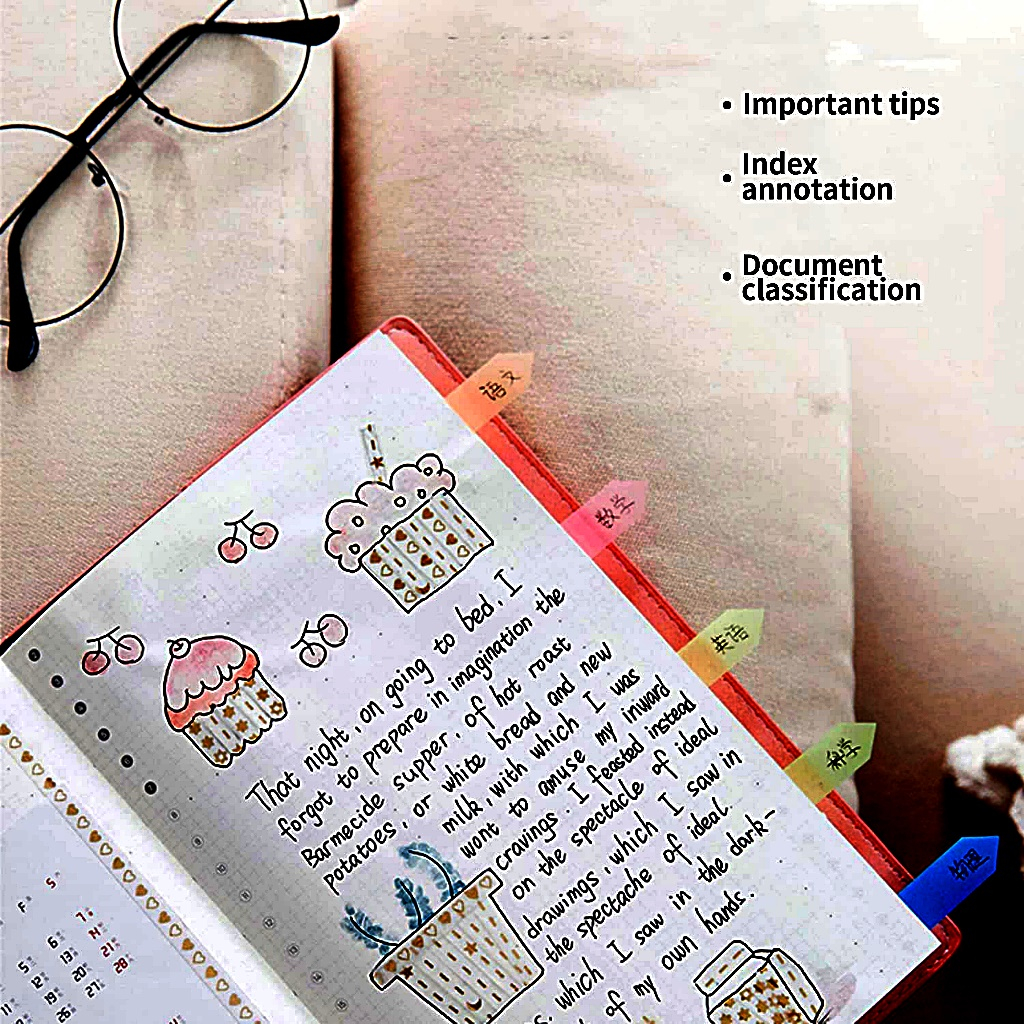 • Important tips
• Index
annotation
• Document
classification
语文
数学
英语
科学
物理
That night, on going to bed, I
forgot to prepare in imagination the
Barmecide supper, of hot roast
potatoes, or white bread and new
milk, with which I was
want to amuse my inward
cravings. I feasted instead
on the spectacle of ideal
drawings, which I saw in
the spectache of ideal
s, which I saw in the dark-
of my own hands.
F
5
7
6
13
14
5
12
19
20
21
11
26
27
28